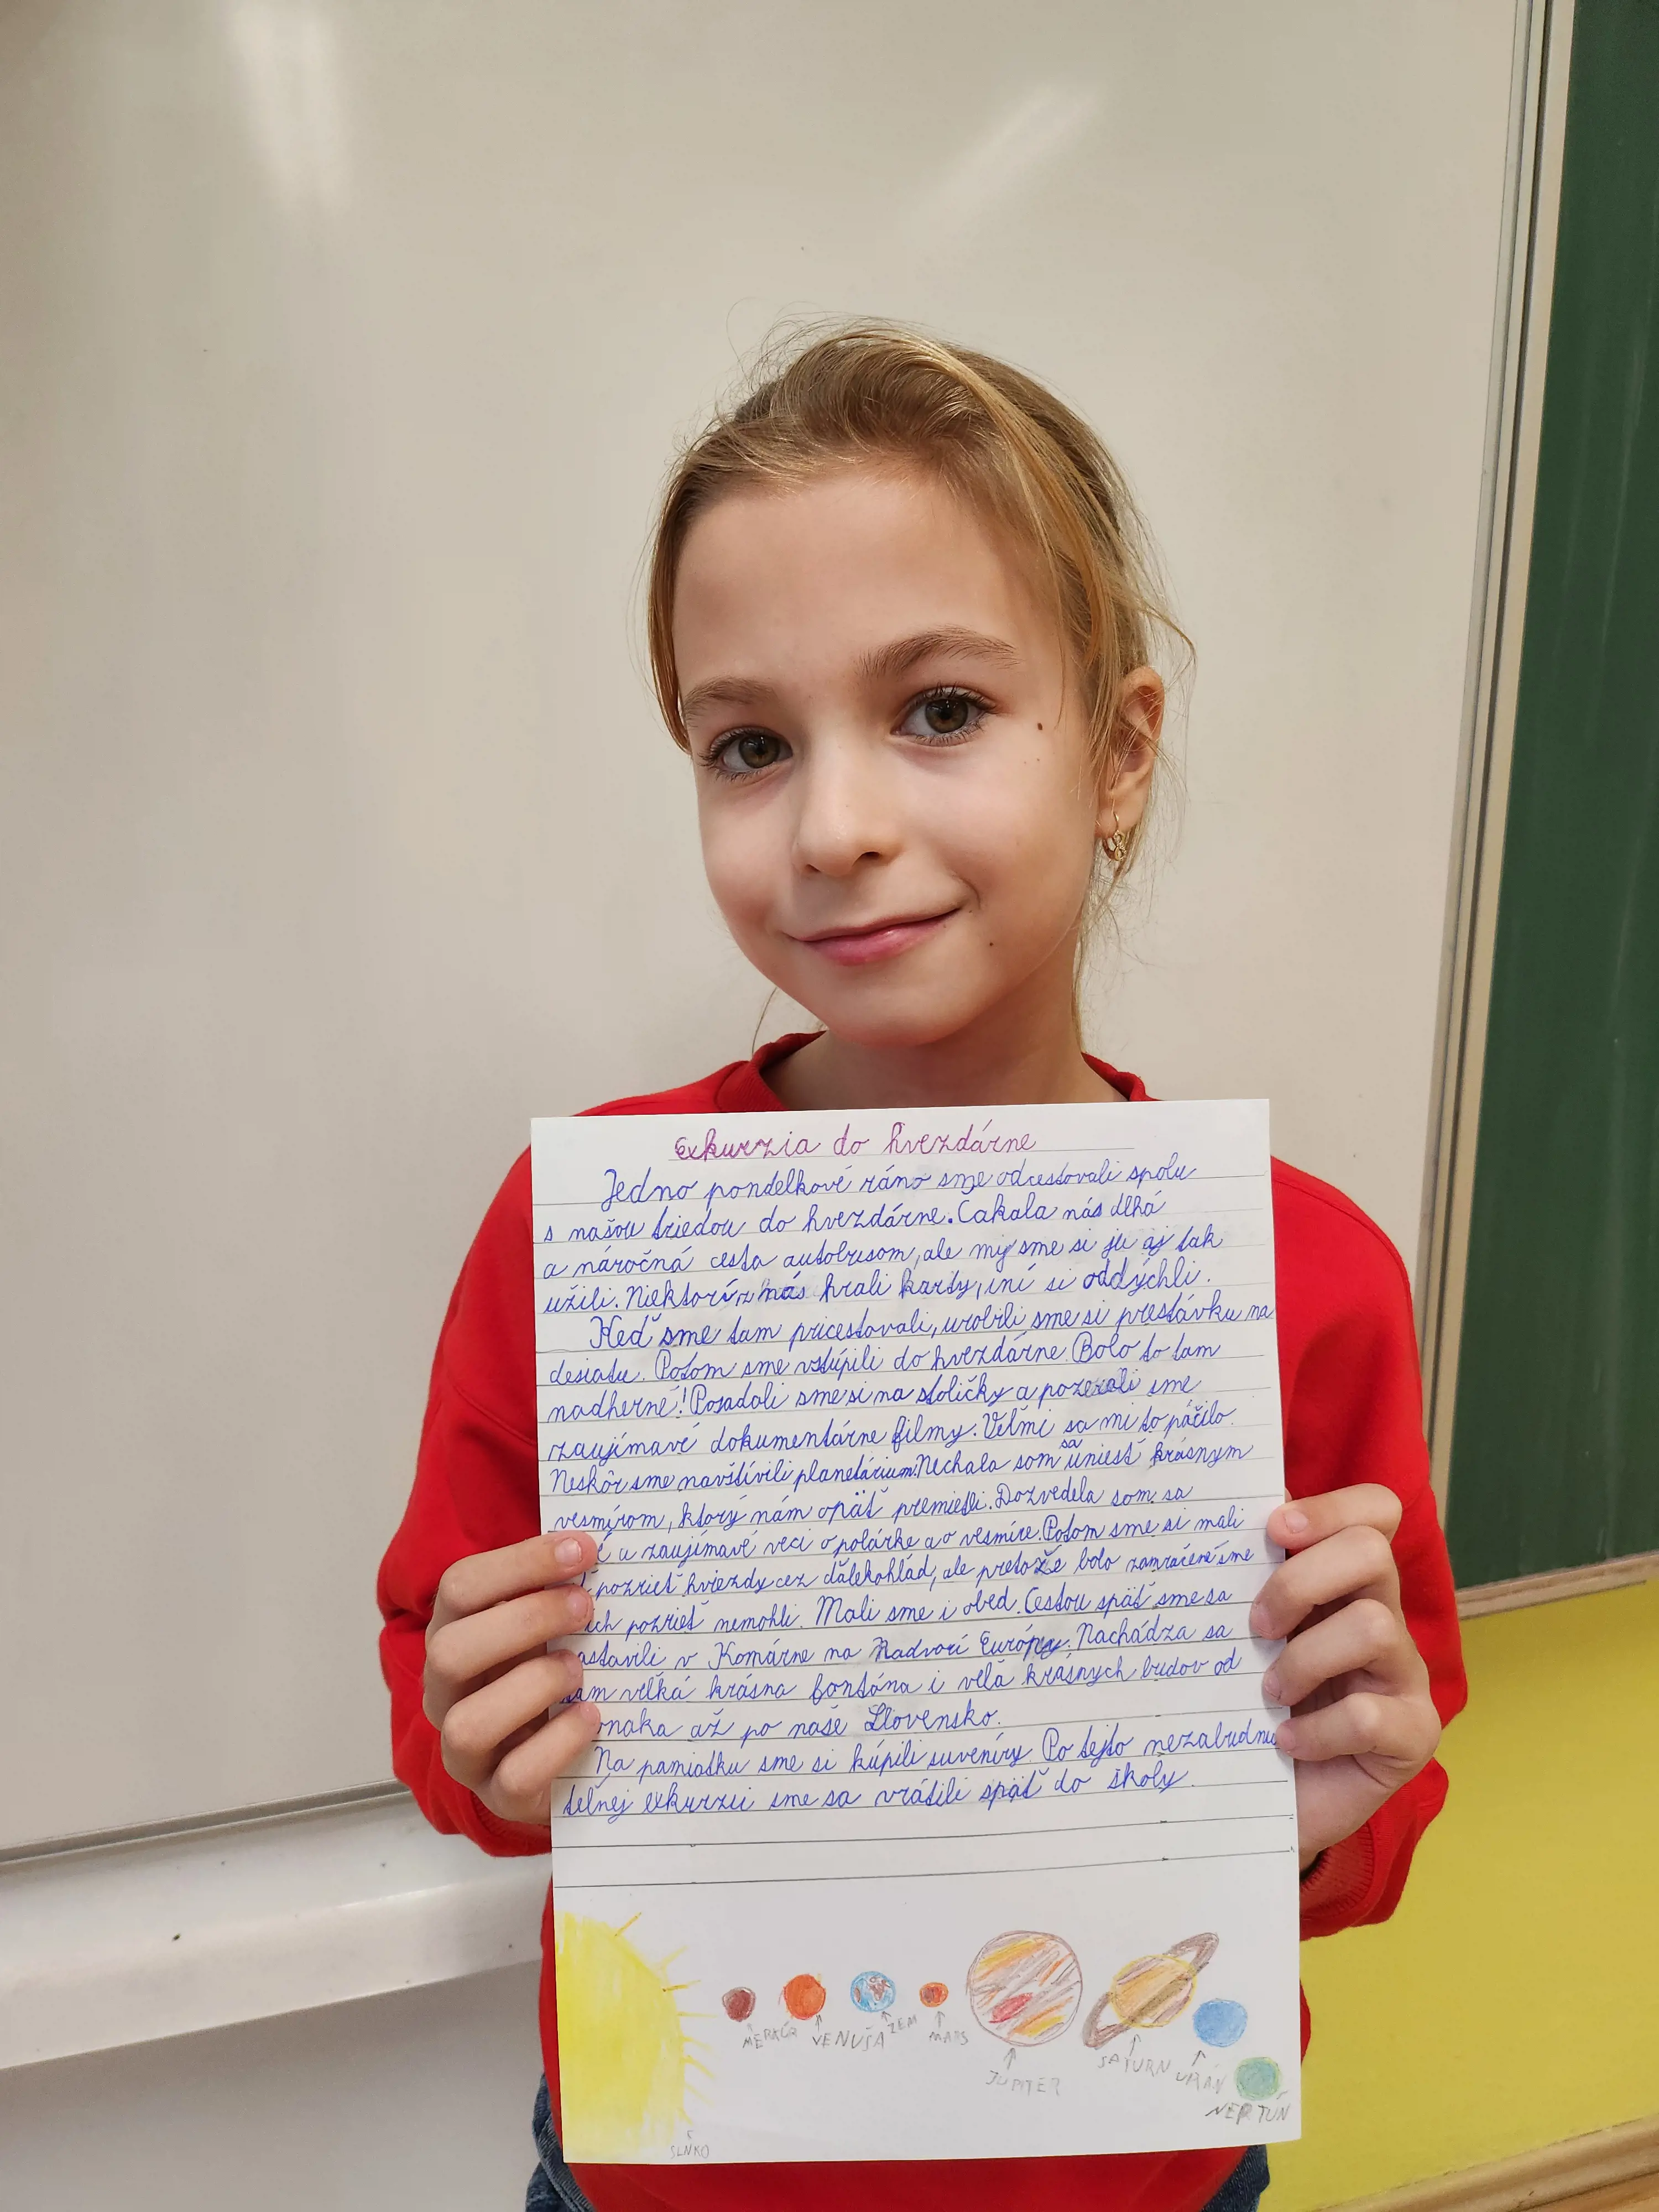 Exkurzia do hvezdárne
Jedno pondelkové ráno sme odcestovali spolu
s našou triedou do hvezdárne. Čakala nás dlhá
a náročná cesta autobusom, ale my sme si ju aj tak
užili. Niektorí z nás hrali karty, iní si oddýchli.
Keď sme tam pricestovali, urobili sme si prestávku na
desiatu. Potom sme vstúpili do hvezdárne. Bolo to tam
nadherné! Posadali sme si na stoličky a pozerali sme
zaujímavé dokumentárne filmy. Veľmi sa mi to páčilo.
Neskôr sme navštívili planetárium. Nechala som sa uniesť krásnym
vesmírom, ktorý nám opäť premietli. Dozvedela som sa
zaujímavé veci o polárke a o vesmíre. Potom sme si mali
pozrieť hviezdy cez ďalekohlad, ale pretože bolo zamračené sme
ich pozrieť nemohli. Mali sme i obed. Cestou späť sme sa
zastavili v Komárne na Nadvorí Európy. Nachádza sa
tam veľká krásna fontána i veľa krásnych budov od
až po naše Slovensko.
Na pamiatku sme si kúpili suveníry. Po tejto nezabudnu
teľnej exkurzii sme sa vrátili späť do školy.
MERKÚR VENUŠA ZEM MARS
JUPITER SATURN URÁN
NEPTÚN
SLNKO